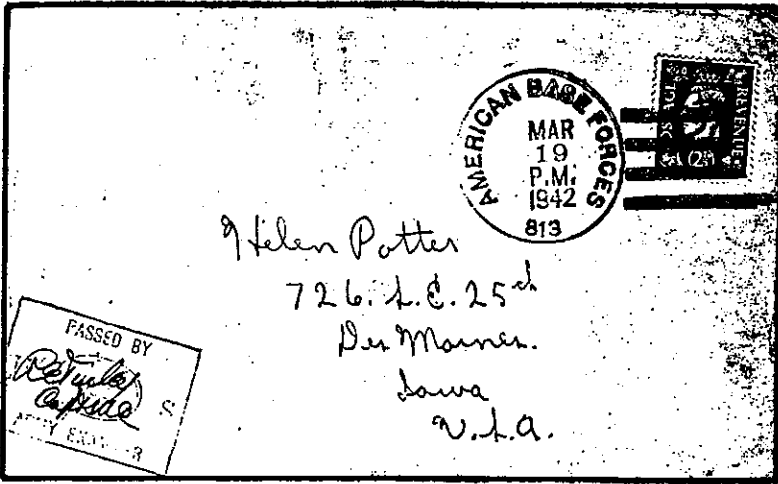 AMERICAN BASE FORCES
MAR
19
P.M.
1942
813
POSTAGE REVENUE
Helen Potter
726. S.E. 25th
Des Moines.
Iowa
U.S.A.
PASSED BY
ARMY EXAMINER